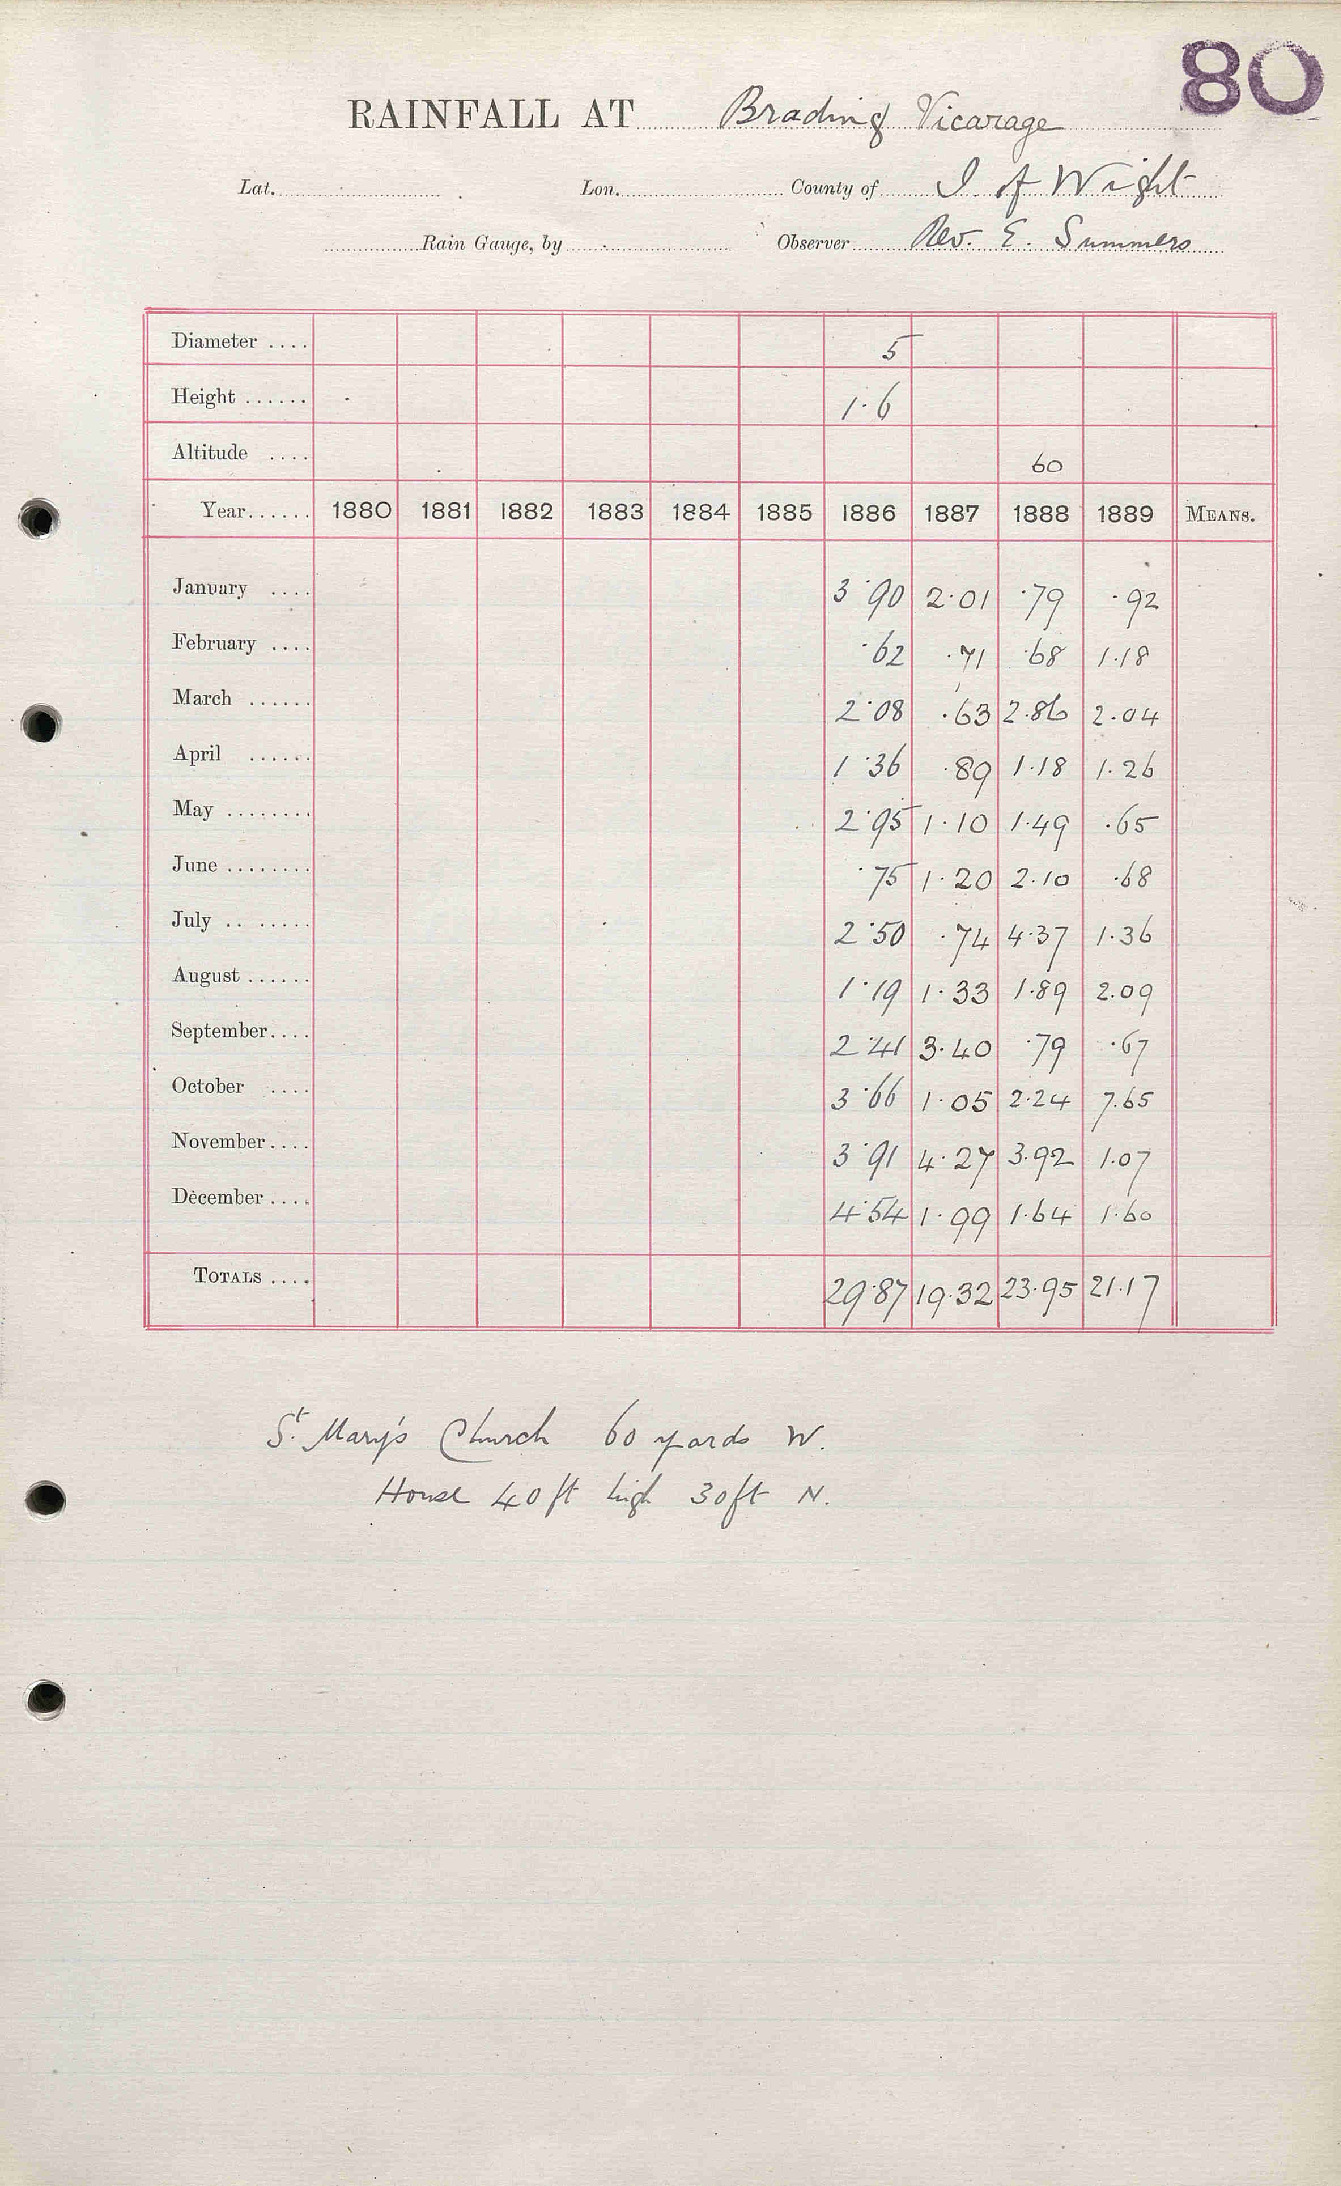 80
RAINFALL AT Brading Vicarage
Lat. Lon. County of I of Wight
Rain Gauge, by Observer Rev. E. Summers
Diameter .... 5
Height ...... 1.6
Altitude .... 60
Year...... 1880 1881 1882 1883 1884 1885 1886 1887 1888 1889 MEANS.
January .... 3.90 2.01 .79 .92
February .... .62 .71 .68 1.18
March ...... 2.08 .63 2.86 2.04
April ...... 1.36 .89 1.18 1.26
May ........ 2.95 1.10 1.49 .65
June ........ .75 1.20 2.10 .68
July .. ..... 2.50 .74 4.37 1.36
August ...... 1.19 1.33 1.89 2.09
September.... 2.41 3.40 .79 .67
October .... 3.66 1.05 2.24 7.65
November.... 3.91 4.27 3.92 1.07
December .... 4.54 1.99 1.64 1.60
TOTALS .... 29.87 19.32 23.95 21.17
St. Mary's Church 60 yards W.
House 40 ft high 30 ft N.